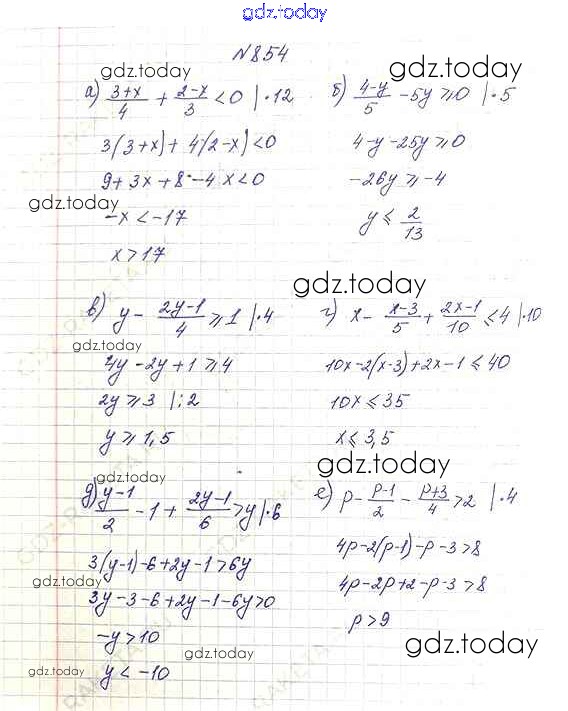 gdz.today
N854
gdz.today gdz.today
а) (3+x)/4 + (2-x)/3 < 0 |·12
б) (4-y)/5 - 5y ⩾ 0 |·5
3(3+x) + 4(2-x) < 0
4-y-25y ⩾ 0
9+3x+8-4x<0
-26y ⩾ -4
gdz.today
-x < -17
y ⩽ 2/13
x > 17
gdz.today
в) y - (2y-1)/4 ⩾ 1 |·4
г) x - (x-3)/5 + (2x-1)/10 ⩽ 4 |·10
gdz.today
4y-2y+1 ⩾ 4
10x-2(x-3)+2x-1 ⩽ 40
2y ⩾ 3 |:2
10x ⩽ 35
y ⩾ 1,5
x ⩽ 3,5
gdz.today gdz.today
д) (y-1)/2 - 1 + (2y-1)/6 > y |·6
е) p - (p-1)/2 - (p+3)/4 > 2 |·4
3(y-1)-6+2y-1>6y
4p-2(p-1)-p-3>8
gdz.today
3y-3-6+2y-1-6y>0
4p-2p+2-p-3>8
-y>10
p>9
gdz.today gdz.today
gdz.today
y < -10